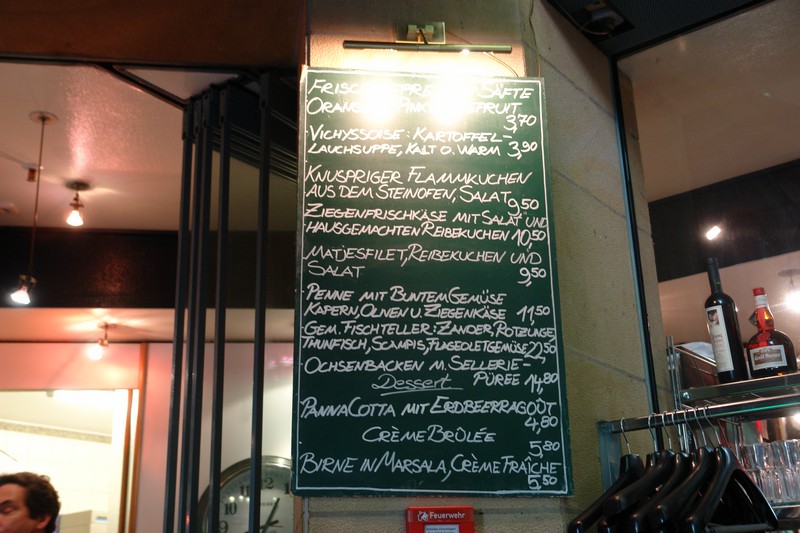 SÄFTE
3,70
VICHYSSOISE: KARTOFFEL-
LAUCHSUPPE, KALT O. WARM 3,90
KNUSPRIGER FLAMMKUCHEN
AUS DEM STEINOFEN, SALAT 9,50
ZIEGENFRISCHKÄSE MIT SALAT UND
HAUSGEMACHTEN REIBEKUCHEN 10,50
MATJESFILET, REIBEKUCHEN UND
SALAT 9,50
PENNE MIT BUNTEM GEMÜSE
KAPERN, OLIVEN U. ZIEGENKÄSE 11,50
GEM. FISCHTELLER: ZANDER, ROTZUNGE
THUNFISCH, SCAMPIS, FLAGEOLETGEMÜSE 22,50
OCHSENBACKEN M. SELLERIE-
PÜREE 14,80
Dessert
PANNACOTTA MIT ERDBEERRAGOÛT
4,80
CRÈME BRÛLÉE
5,80
BIRNE IN MARSALA, CRÈME FRAÎCHE
5,50
Feuerwehr